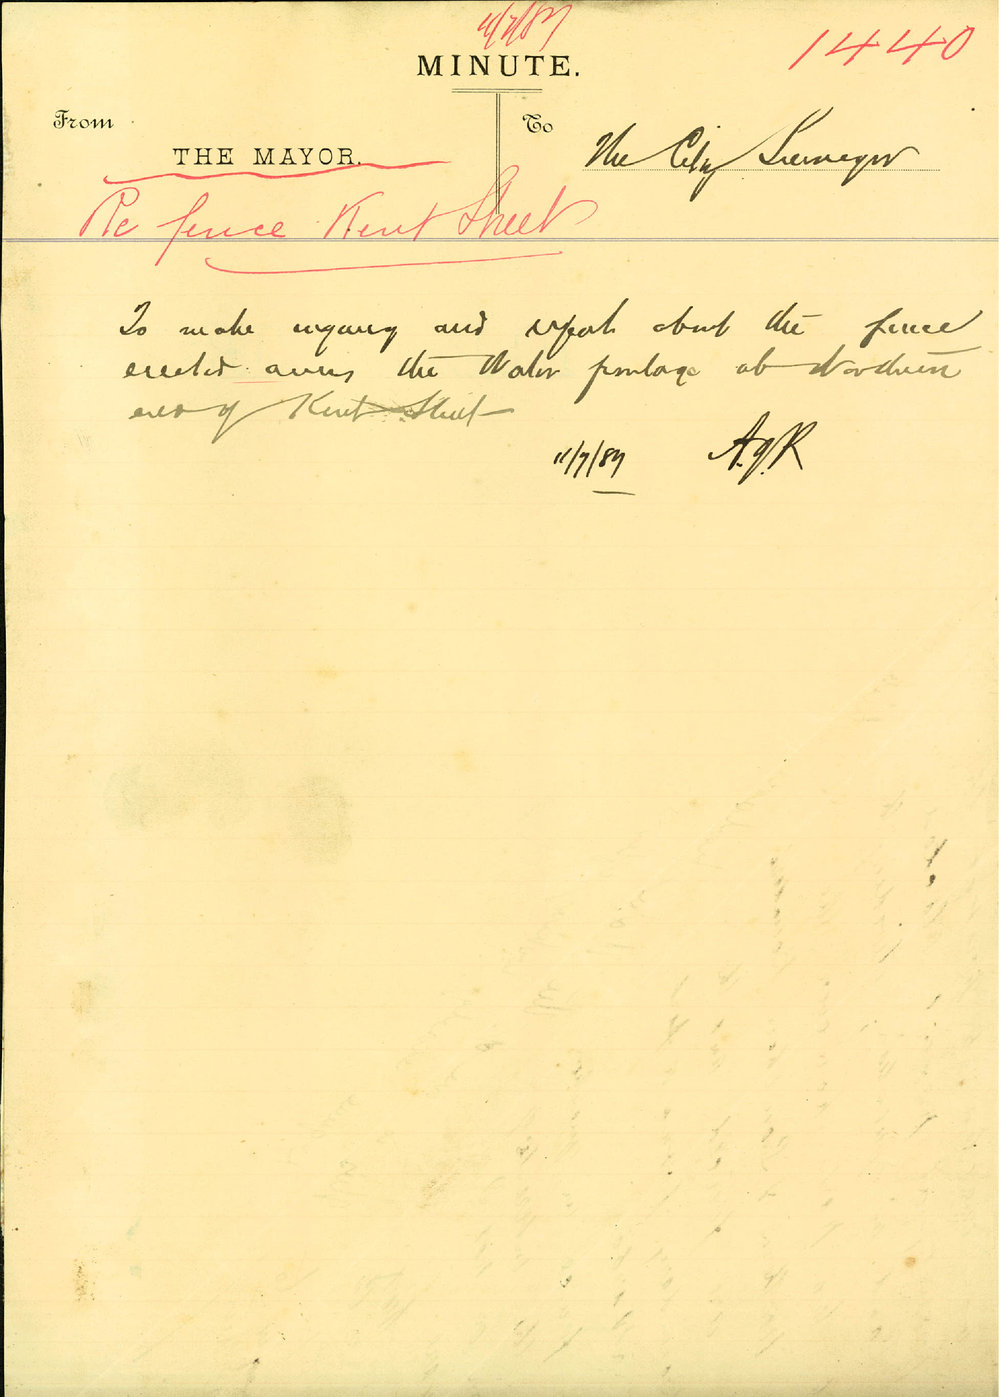 11/7/87
1440
MINUTE.
From
To
THE MAYOR.
The City Surveyor
Re fence Kent Street
To make enquiry and report about the fence
erected across the Water frontage at Northern
end of Kent Street
11/7/87 A.J.R